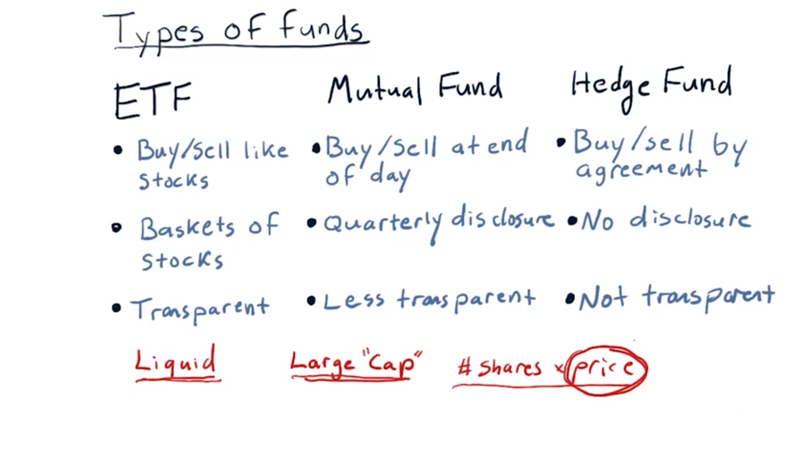 Types of funds
ETF
Buy/Sell like
stocks
Baskets of
stocks
Transparent
Mutual Fund
Buy/Sell at end
of day
Quarterly disclosure
Less transparent
Hedge Fund
Buy/sell by
agreement
No disclosure
Not transparent
Liquid
Large "Cap"
# shares × price